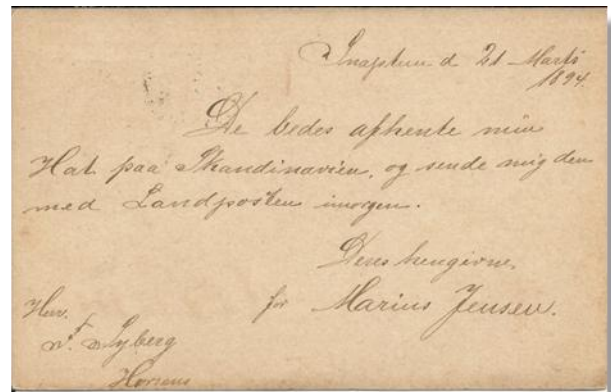 Snaptun d 21 Marts
1894.
De bedes afhente min
Hat paa Skandinavien, og sende mig den
med Landposten imorgen.
Deres hengivne.
for Marius Jensen.
Herr.
Nyberg
Horsens